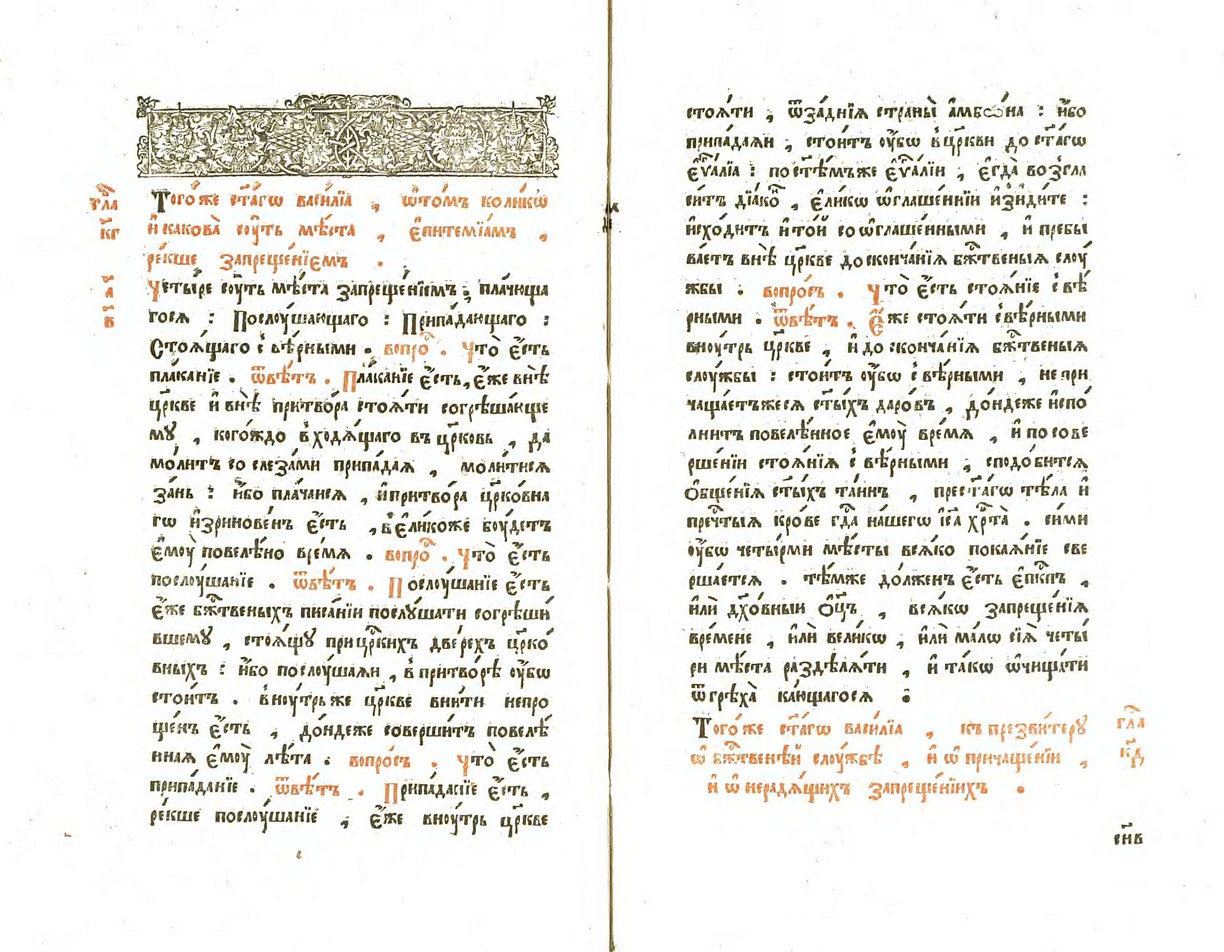 гла҃
к҃г
а҃
в҃
Тогоже ст҃агѡ васи́лїа , ѡ҆то́мъ коли́кѡ
и҆ какова̀ сѹ́ть мѣ́ста , є҆питемі́амъ ,
ре́кше запреще́нїємъ .
Четы́ре сѹ́ть мѣ́ста запреще́нїємъ ; пла́чюща
гося : Послѹ́шающаго : Припа́дающаго :
Стоя́щаго с вѣ́рными . вопро́с . Что̀ є҆́сть
пла́канїе . ѿвѣ́тъ . Пла́канїе є҆́сть, є҆́же внѣ̀
цр҃кве и҆ внѣ̀ притво́ра стоя́ти согрѣша́юще
мꙋ , кого́ждо входя́щаго въ цр҃ковь , да
мо́литъ со слеза́ми припа́дая , моли́тися
зань : и҆́бо пла́чаися , и҆притво́ра цр҃ко́вна
гѡ и҆зринове́нъ є҆́сть , в є҆ли́коже бѹ́детъ
є҆мѹ̀ повелѣ́но вре́мя . вопро́с . Что̀ є҆́сть
послѹ́шанїе . ѿвѣ́тъ . Послѹ́шанїе є҆́сть
є҆́же бж҃твеныхъ писа́нїи послꙋ́шати согрѣши́
вшемꙋ , стоя́щꙋ при цр҃кихъ две́рехъ цр҃ко́
вныхъ : и҆́бо послѹ́шаяи , в притво́рѣ ѹ҆́бѡ
стои́тъ . внѹ́трь же цр҃кве вни́ти непро
ще́нъ є҆́сть , до́ндеже соверши́тъ повелѣ́
нная є҆мѹ̀ лѣ́та . вопро́съ . Что̀ є҆́сть
припа́данїе . ѿвѣ́тъ . Припа́данїе є҆́сть ,
ре́кше послѹ́шанїе , є҆́же внѹ́трь цр҃кве
стоя́ти , ѿза́днїя страны̀ а҆мбѡ́на : и҆́бо
припа́даяи , стои́тъ ѹ҆́бѡ в цр҃кви до ст҃агѡ
є҆ѵ҃алїа : по се́мъже є҆ѵ҃алїи , є҆гда̀ возгла
си́тъ дїа́ко , є҆ли́кѡ ѡ҆глаше́ннїи и҆зыди́те :
и҆схо́дитъ и҆ то́й со ѡ҆глаше́нными , и҆ пребы
ва́етъ внѣ̀ цр҃кве до сконча́нїя бж҃твеныя слѹ́
жбы . вопро́съ . Что̀ є҆́сть стоя́нїе с вѣ́
рными . ѿвѣ́тъ . Є҆́же стоя́ти с вѣ́рными
внѹ́трь цр҃кве , и҆ до сконча́нїя бж҃твеныя
слѹ́жбы : стои́тъ ѹ҆́бѡ с вѣ́рными , не при
чаща́етъжеся ст҃ы́хъ даро́въ , до́ндеже и҆спо́
лнитъ повелѣ́нное є҆мѹ̀ вре́мя , и҆ по сове
рше́нїи стоя́нїя с вѣ́рными , сподо́бится
О҆бще́нїя ст҃ы́хъ та́инъ , прест҃агѡ тѣ́ла и҆
преч҃тыя кро́ве гд҃а на́шегѡ і҆с҃а хр҃та . си́ми
ѹ҆́бѡ четы́рми мѣ́сты вся́ко покая́нїе све
рша́ется . тѣ́мже до́лженъ є҆́сть є҆пк҃пъ ,
и҆лѝ дх҃о́вныи О҆ц҃ъ , вся́кѡ запреще́нїя
вре́мене , и҆лѝ вели́кѡ , и҆лѝ ма́лѡ сїя̀ четы́
ри мѣ́ста раздѣля́ти , и҆ та́кѡ ѡ҆чища́ти
ѿ грѣха̀ ка́ющагося :
Тогоже ст҃агѡ васи́лїа , къ презви́терꙋ
ѡ҆ бж҃твенѣ́й слѹ́жбѣ , и҆ ѡ҆ причаще́нїи ,
и҆ ѡ҆ нерадя́щихъ запреще́нїихъ .
гла҃
к҃д
сн҃в